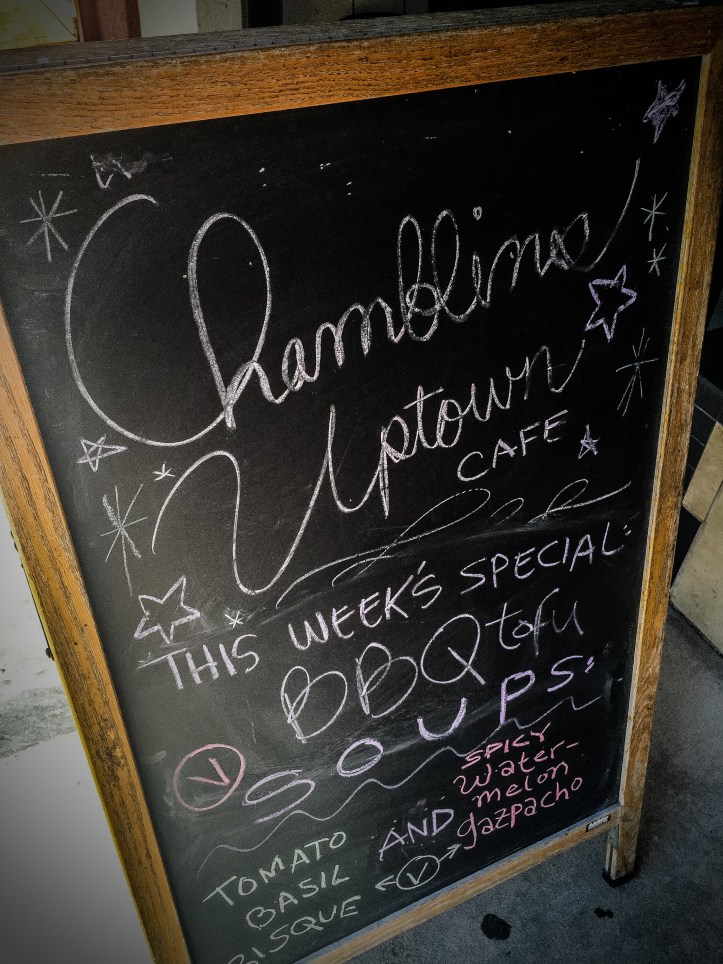 Chamblins
Uptown
CAFE
THIS WEEK'S SPECIAL:
BBQ tofu
V
SOUPS:
TOMATO
BASIL
BISQUE
AND
V
SPICY
Water-
melon
gazpacho